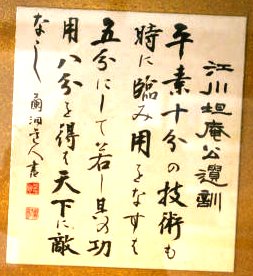 江川坦庵公遺訓
平素十分の技術も
時に臨み用をなすも
五分にして若し其の功
用八分を得ば天下に敵
なし
道人書